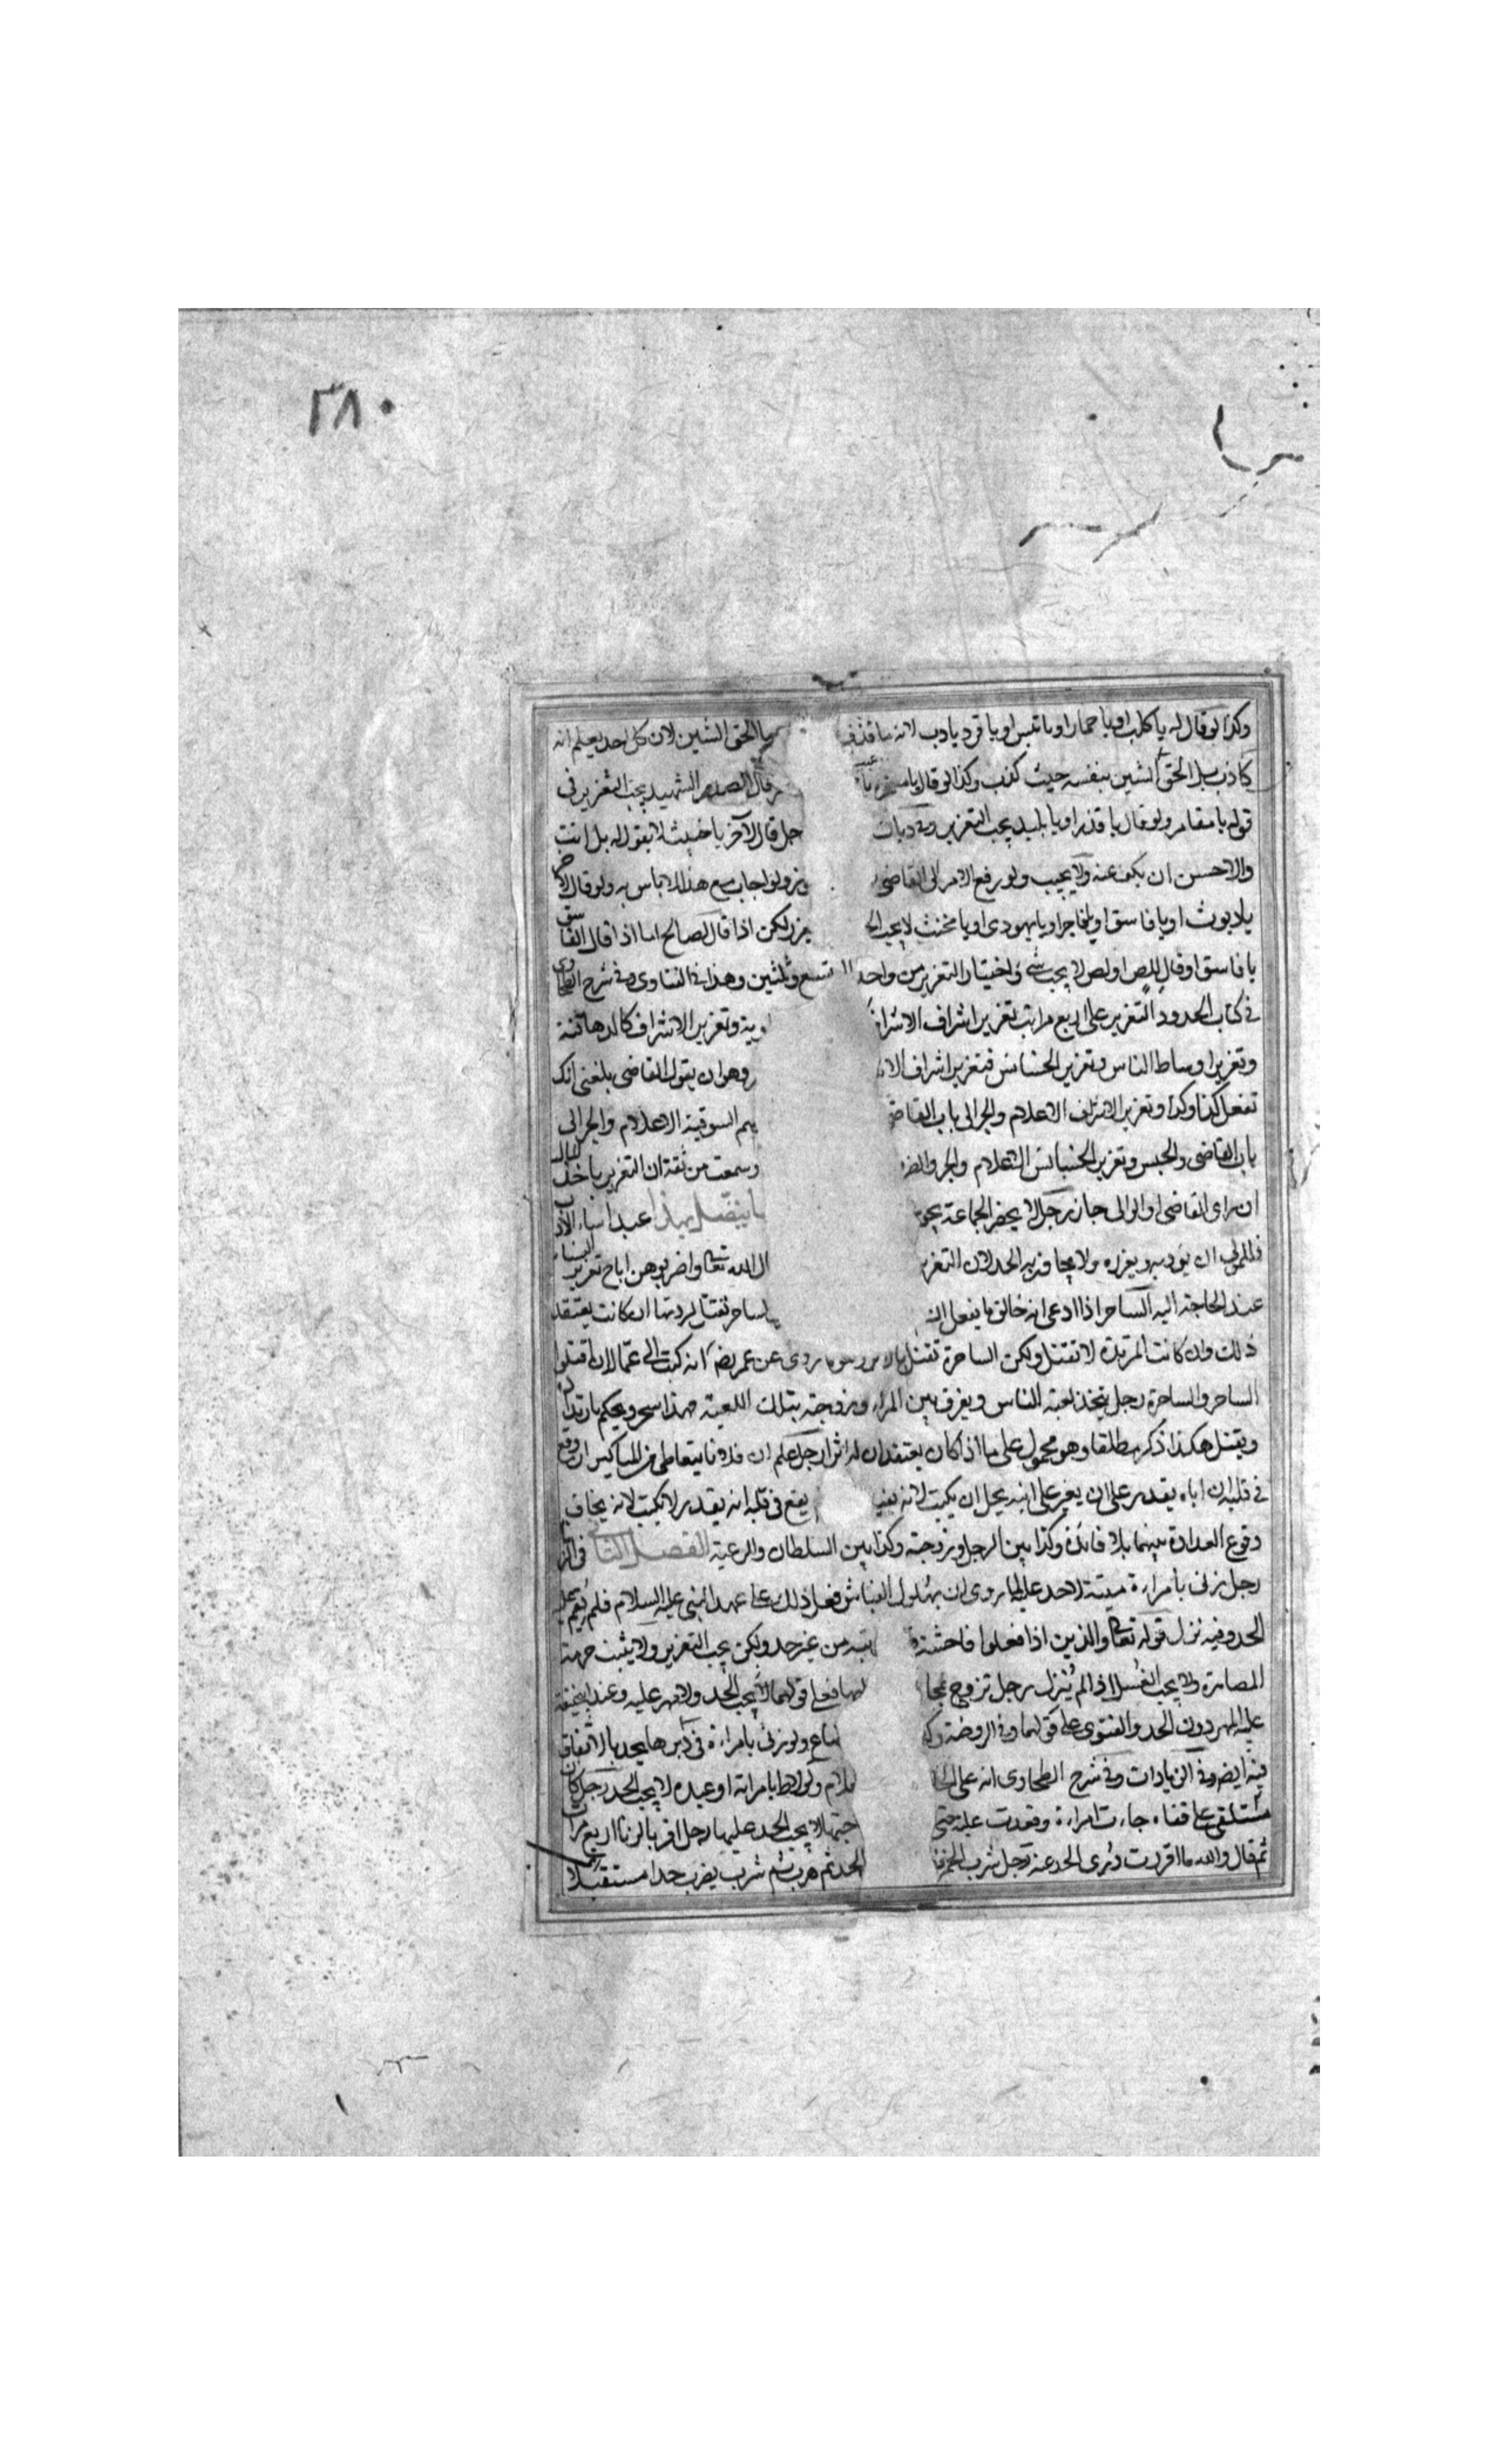 ٢٨٠
وكذا لو قال له يا كلب او يا حمار او يا تيس او يا قرد يا دب لانه ما قذف ما الحق الشين لان كل احد يعلم انه
كاذب بل الحق الشين بنفسه حيث كذب وكذا لو قال يا قال الصدر الشهيد يجب التعزير فى
قوله يا مقامر ولو قال يا قذر او يا بليد يجب التعزير وفى ديات جل قال لآخر يا خبيث لا يقول له بل انت
والاحسن ان يكف عنه ولا يجيب ولو رفع الامر الى القاضى ولو اجاب مع هذا لا باس به ولو قال لاخر
يا ديوث او يا فاسق او يا فاجر او يا يهودى او يا مخنث لا يجب لكن اذا قال لصالح اما اذا قال الفاسق
يا فاسق او قال للص او لص لا يجب شئ واختيار التعزير من واحد الى تسع وثلثين وهذا فى الفتاوى وفى شرح الطحاوى
فى كتاب الحدود التعزير على اربع مراتب تعزير اشراف الاشراف وتعزير الاشراف كالدهاقنة
وتعزير اوساط الناس وتعزير الخسائس فتعزير اشراف وهو ان يقول القاضى بلغنى انك
تفعل كذا وكذا وتعزير الاشراف الاعلام والجر الى باب القاضى السوقية الاعلام والجر الى
باب القاضى والحبس وتعزير الخسائس الاعلام والجر والضر وسمعت من ثقة ان التعزير باخذ المال
ان راى القاضى او الوالى جاز رجل لا يحضر الجماعة يجو ما يتصل بهذا عبد اساء الادب
فللمولى ان يؤدبه ويعزره ولا يجاوز به الحد لان التعزير ال الله تعالى واضربوهن اباح تعزير النساء
عند الحاجة اليه الساحر اذا ادعى انه خالق ما يفعل ان الساحر تقتل لردتها ان كانت يعتقد
ذلك وان كانت المرتدة لا تقتل ولكن الساحرة تقتل روى عن عمر رضى انه كتب الى عماله ان اقتلوا
الساحر والساحرة رجل يتخذ لعبة الناس ويفرق بين المراء وزوجته بتلك اللعبة فهذا سحر ويحكم بارتداده
ويقتل هكذا ذكر مطلقا وهو محمول على ما اذا كان يعتقد ان له اثرا رجل علم ان فلانا يتعاطى من المناكير ان وقع
فى قلبه ان اباه يقدر على ان يغير على ابنه يحل ان يكتب لانه يفيد يقع فى قلبه انه يقدر لا يكتب لانه يخاف
وقوع العداوة بينهما بلا فائدة وكذا بين الرجل وزوجته وكذا بين السلطان والرعية الفصل الثانى فى الزنا
رجل زنى بامراءة ميتة لا حد عليه لما روى ان بهلول النباش فعل ذلك على عهد النبى عليه السلام فلم يقم عليه
الحد وفيه نزل قوله تعالى والذين اذا فعلوا فاحشة من غير حد ولكن يجب التعزير ولا يثبت حرمة
المصاهرة ولا يجب الغسل اذا لم ينزل رجل تزوج فعلى قولهما لا يجب الحد ولا مهر عليه وعند ابى حنيفة
عليه المهر دون الحد والفتوى على قولهما وفى الروضة ولو زنى بامراءة فى دبرها يحد بالاتفاق
فيه ايضا وفى الزيادات وفى شرح الطحاوى انه على ولو لاط بامراته او عبده لا يجب الحد رجل كان
مستلقى على قفاه جاءت امراءة وقعدت عليه حتى لا يجب الحد عليها رجل اقر بالزنا اربع مرات
ثم قال والله ما اقررت درى الحد عنه رجل شرب الخمر الحد ثم هرب ثم شرب يضرب حدا مستقبلا